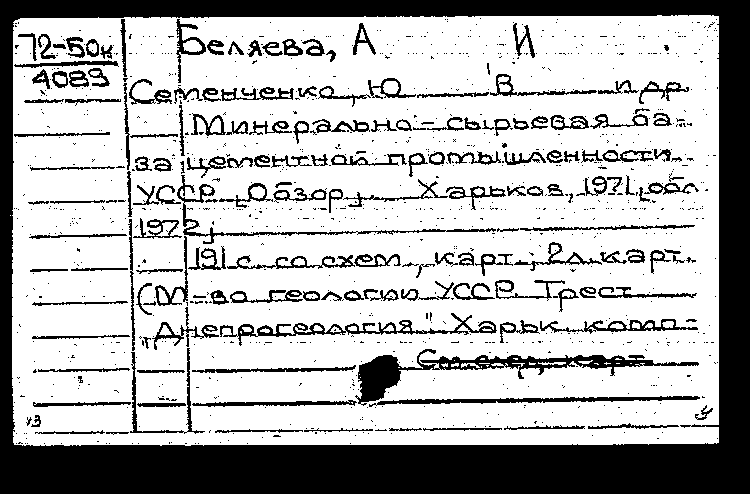 72-50к
4089
Беляева, А И
Семенченко, Ю В и др.
Минерально-сырьевая ба-
за цементной промышленности
УССР. [Обзор]. Харьков, 1971, [обл.
1972]
191 с. со схем., карт.; 2 л. карт.
(М-во геологии УССР. Трест
"Днепрогеология" Харьк. комп-
См. след. карт.